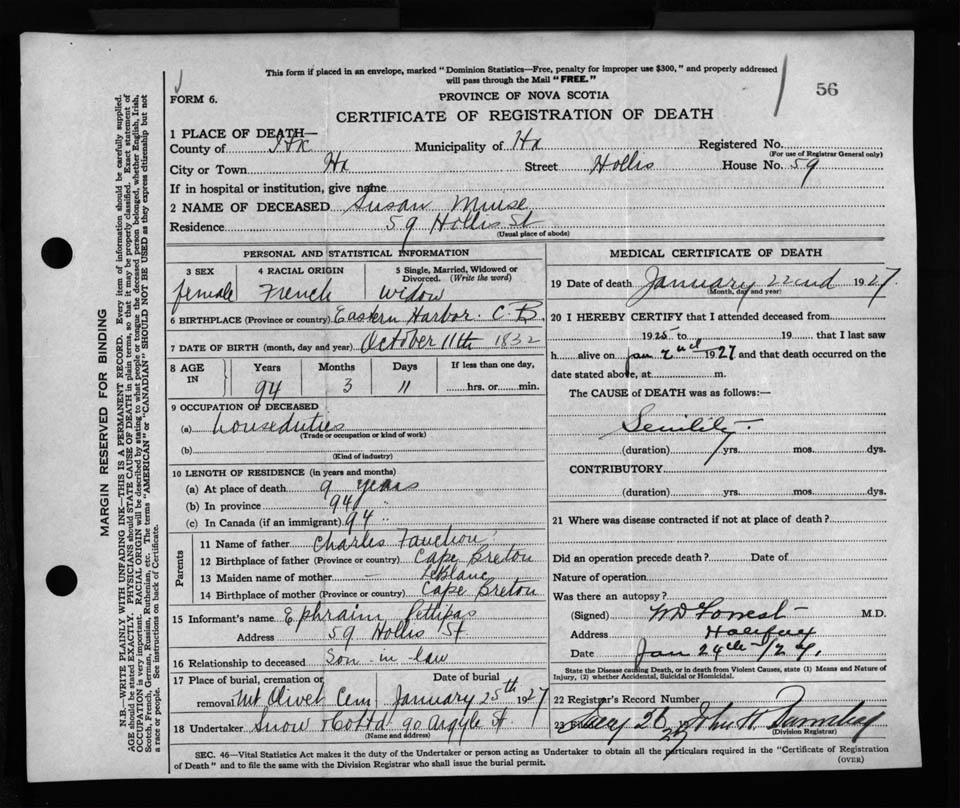 This form if placed in an envelope, marked "Dominion Statistics—Free, penalty for improper use $300," and properly addressed
will pass through the Mail "FREE."
56
FORM 6.
PROVINCE OF NOVA SCOTIA
CERTIFICATE OF REGISTRATION OF DEATH
1 PLACE OF DEATH—
County of Hx Municipality of Hx Registered No.
(For use of Registrar General only)
City or Town Hx Street Hollis House No. 59
If in hospital or institution, give name
2 NAME OF DECEASED Susan Muise
Residence 59 Hollis St
(Usual place of abode)
PERSONAL AND STATISTICAL INFORMATION
3 SEX 4 RACIAL ORIGIN 5 Single, Married, Widowed or
Divorced. (Write the word)
female French widow
6 BIRTHPLACE (Province or country) Eastern Harbor. C B.
7 DATE OF BIRTH (month, day and year) October 11th 1832
8 AGE IN Years Months Days If less than one day,
94 3 11 hrs. or min.
9 OCCUPATION OF DECEASED
(a) houseduties
(Trade or occupation or kind of work)
(b)
(Kind of industry)
10 LENGTH OF RESIDENCE (in years and months)
(a) At place of death 9 years
(b) In province 94 "
(c) In Canada (if an immigrant) 94 "
Parents
11 Name of father Charles
12 Birthplace of father (Province or country) Cape Breton
13 Maiden name of mother — LeBlanc
14 Birthplace of mother (Province or country) Cape Breton
15 Informant's name Ephraim Pettipas
Address 59 Hollis St.
16 Relationship to deceased Son-in-law
17 Place of burial, cremation or Date of burial
removal Mt Olivet Cem January 25th 1927
18 Undertaker Snow & Co 90 Argyle St.
(Name and address)
MEDICAL CERTIFICATE OF DEATH
19 Date of death January 22nd 1927.
(Month, day and year)
20 I HEREBY CERTIFY that I attended deceased from
1925 to 19 that I last saw
h alive on Jan 2nd 1927 and that death occurred on the
date stated above, at m.
The CAUSE of DEATH was as follows:—
Senility.
(duration) yrs. mos. dys.
CONTRIBUTORY
(duration) yrs. mos. dys.
21 Where was disease contracted if not at place of death?
Did an operation precede death? Date of
Nature of operation
Was there an autopsy?
(Signed) W D Forrest M.D.
Address Halifax
Date Jan 24th /27.
State the Disease causing Death, or in death from Violent Causes, state (1) Means and Nature of
Injury, (2) whether Accidental, Suicidal or Homicidal.
22 Register's Record Number
23 Jany 26 27 John H
(Division Registrar)
SEC. 46—Vital Statistics Act makes it the duty of the Undertaker or Person acting as Undertaker to obtain all the particulars required in the "Certificate of Registration
of Death" and to file the same with the Division Registrar who shall issue the burial permit.
(OVER)
MARGIN RESERVED FOR BINDING
N.B.—WRITE PLAINLY WITH UNFADING INK—THIS IS A PERMANENT RECORD. Every item of information should be carefully supplied.
AGE should be stated EXACTLY. PHYSICIANS should STATE CAUSE OF DEATH in plain terms, so that it may be properly classified. Exact statement of
OCCUPATION is very important. RACIAL ORIGIN will be described by stating to what people or tongue the deceased person belonged, whether English, Irish,
Scotch, French, German, Russian, Ruthenian, etc. The terms "AMERICAN" or "CANADIAN" SHOULD NOT BE USED as they express citizenship but not
a race or people. See instructions on back of Certificate.